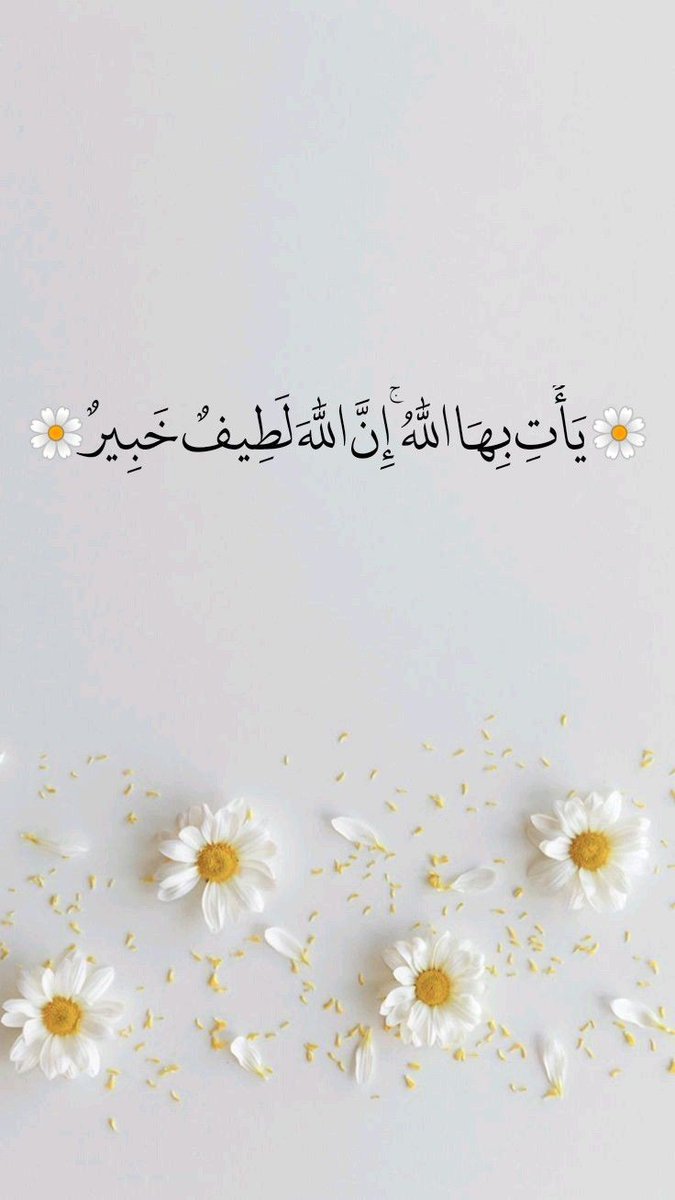 🌼يَأۡتِ بِهَا ٱللَّهُۚ إِنَّ ٱللَّهَ لَطِيفٌ خَبِيرٌ🌼